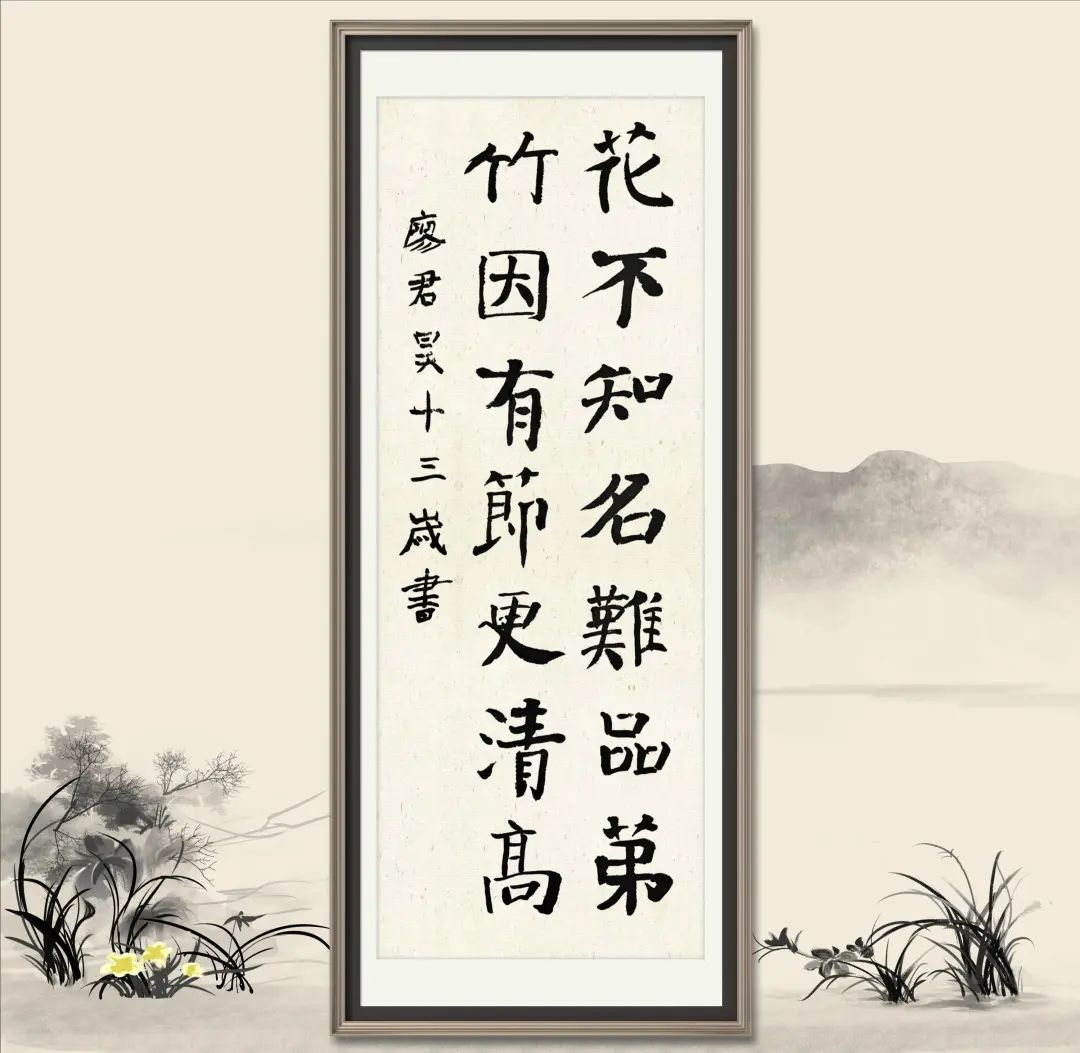 花不知名難品苐
竹因有節更清髙
廖君昊十三歲書